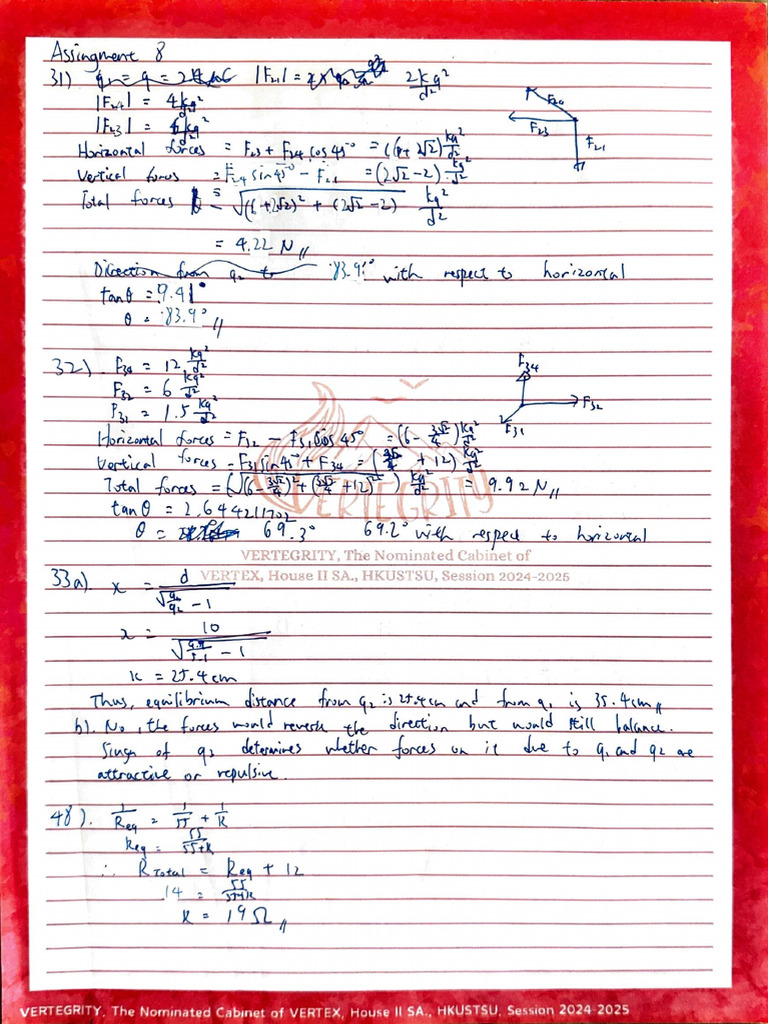 Assingment 8
31) |F₂₁| = 2kq²/d²
|F₂₄| = 4kq²/d²
|F₂₃| = 6kq²/d²
Horizontal forces = F₂₃ + F₂₄ cos45° = (6+2√2) kq²/d²
Vertical forces = F₂₄ sin45° - F₂₁ = (2√2-2) kq²/d²
Total forces = √((6+2√2)² + (2√2-2)) kq²/d²
= 4.22 N //
Direction from q₂ to 83.9° with respect to horizontal
tanθ = 9.41°
θ = 83.9° //
F₂₄
F₂₃
F₂₁
32). F₃₄ = 12 kq²/d²
F₃₂ = 6 kq²/d²
F₃₁ = 1.5 kq²/d²
Horizontal forces = F₃₂ - F₃₁ cos 45° = (6 - 3√2/4) kq²/d²
Vertical forces = F₃₁ sin45° + F₃₄ = (3√2/4 + 12) kq²/d²
Total forces = (√(6-3√2/4)² + (3√2/4+12)²) kq²/d² = 9.92 N //
tanθ = 2.644211702
θ = 69.3° 69.2° with respect to horizontal
F₃₄
F₃₂
F₃₁
VERTEGRITY
VERTEGRITY, The Nominated Cabinet of
VERTEX, House II SA., HKUSTSU, Session 2024-2025
33a) x = d/(√(q₁/q₂) - 1)
x = 10/(√ - 1)
x = 25.4 cm
Thus, equilibrium distance from q₂ is 25.4cm and from q₁ is 35.4cm //
b). No, the forces would reverse the direction but would still balance.
Singn of q₃ determines whether forces on it due to q₁ and q₂ are
attractive or repulsive.
48). 1/Req = 1/55 + 1/R
Req = 55/55+R
∴ R Total = Req + 12
14 = 55/55+R
R = 19 Ω //
VERTEGRITY, The Nominated Cabinet of VERTEX, House II SA., HKUSTSU, Session 2024-2025